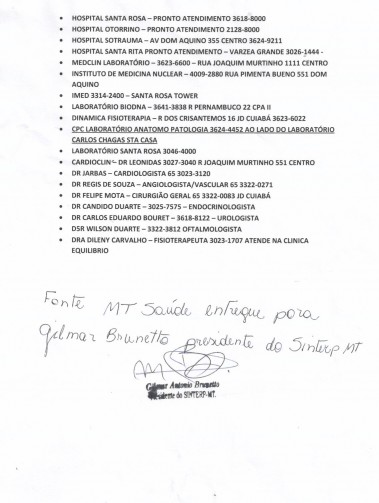 • HOSPITAL SANTA ROSA – PRONTO ATENDIMENTO 3618-8000
• HOSPITAL OTORRINO – PRONTO ATENDIMENTO 2128-8000
• HOSPITAL SOTRAUMA – AV DOM AQUINO 355 CENTRO 3624-9211
• HOSPITAL SANTA RITA PRONTO ATENDIMENTO – VARZEA GRANDE 3026-1444 -
• MEDCLIN LABORATÓRIO – 3623-6600 – RUA JOAQUIM MURTINHO 1111 CENTRO
• INSTITUTO DE MEDICINA NUCLEAR – 4009-2880 RUA PIMENTA BUENO 551 DOM
AQUINO
• IMED 3314-2400 – SANTA ROSA TOWER
• LABORATÓRIO BIODNA – 3641-3838 R PERNAMBUCO 22 CPA II
• DINAMICA FISIOTERAPIA – R DOS CRISANTEMOS 16 JD CUIABÁ 3623-6022
• CPC LABORATÓRIO ANATOMO PATOLOGIA 3624-4452 AO LADO DO LABORATÓRIO
CARLOS CHAGAS STA CASA
• LABORATÓRIO SANTA ROSA 3046-4000
• CARDIOCLIN – DR LEONIDAS 3027-3040 R JOAQUIM MURTINHO 551 CENTRO
• DR JARBAS – CARDIOLOGISTA 65 3023-3120
• DR REGIS DE SOUZA – ANGIOLOGISTA/VASCULAR 65 3322-0271
• DR FELIPE MOTA – CIRURGIÃO GERAL 65 3322-0083 JD CUIABÁ
• DR CANDIDO DUARTE – 3025-7575 – ENDOCRINOLOGISTA
• DR CARLOS EDUARDO BOURET – 3618-8122 – UROLOGISTA
• DSR WILSON DUARTE – 3322-3812 OFTALMOLOGISTA
• DRA DILENY CARVALHO – FISIOTERAPEUTA 3023-1707 ATENDE NA CLINICA
EQUILIBRIO
Fonte MT Saúde entregue para
Gilmar Brunetto presidente do Sinterp MT
Gilmar Antonio Brunetto
Presidente do SINTERP-MT.